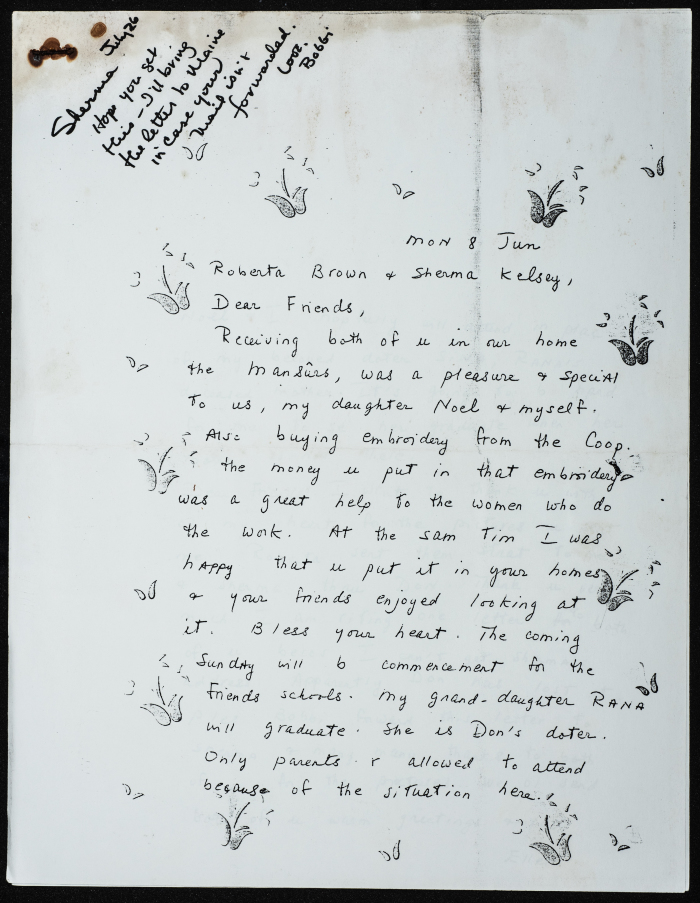 Sherma July 26
Hope you get
this - I'll bring
the letter to Maine
in case your
mail isn't
forwarded.
Love,
Bobbi
MON 8 Jun
Roberta Brown & Sherma Kelsey,
Dear Friends,
Receiving both of u in our home
the Mansûrs, was a pleasure & special
To us, my daughter Noel & myself.
Also buying embroidery from the Coop.
the money u put in that embroidery
was a great help to the women who do
the work. At the sam Tim I was
happy that u put it in your homes
& your friends enjoyed looking at
it. Bless your heart. The coming
Sunday will b commencement for the
Friends schools. My grand-daughter RANA
will graduate. She is Don's doter.
Only parents r allowed to attend
because of the situation here.